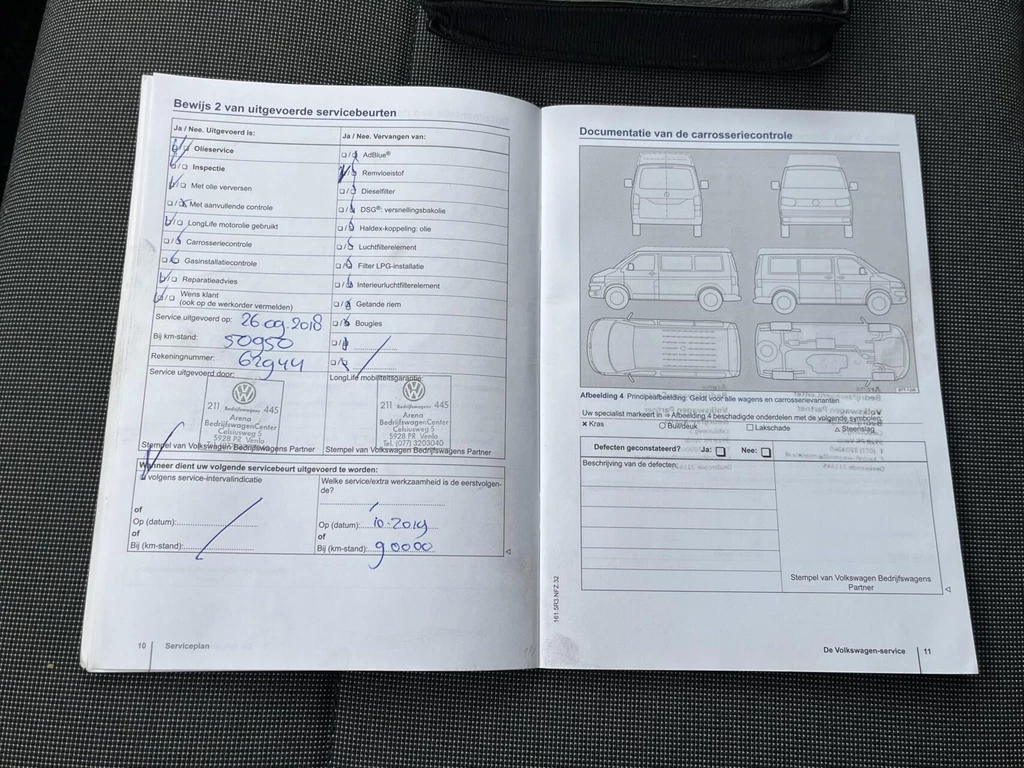 Bewijs 2 van uitgevoerde servicebeurten
Ja / Nee. Uitgevoerd is:
Ja / Nee. Vervangen van:
Olieservice
AdBlue®
Inspectie
Remvloeistof
Met olie verversen
Dieselfilter
Met aanvullende controle
DSG®: versnellingsbakolie
LongLife motorolie gebruikt
Haldex-koppeling: olie
Carrosseriecontrole
Luchtfilterelement
Gasinstallatiecontrole
Filter LPG-installatie
Reparatieadvies
Interieurluchtfilterelement
Wens klant
(ook op de werkorder vermelden)
Getande riem
Service uitgevoerd op: 26 09.2018
Bougies
Bij km-stand: 50950
Rekeningnummer: 62944
Service uitgevoerd door:
LongLife mobiliteitsgarantie:
211 Bedrijfswagens 445
Arena
BedrijfswagenCenter
Celsiusweg 5
5928 PR Venlo
211 Bedrijfswagens 445
Arena
BedrijfswagenCenter
Celsiusweg 5
5928 PR Venlo
Tel. (077) 3203040
Stempel van Volkswagen Bedrijfswagens Partner
Stempel van Volkswagen Bedrijfswagens Partner
Wanneer dient uw volgende servicebeurt uitgevoerd te worden:
volgens service-intervalindicatie
Welke service/extra werkzaamheid is de eerstvolgen-
de?
of
Op (datum):
Op (datum): 10-2019
of
of
Bij (km-stand):
Bij (km-stand): 90000
10 Serviceplan
Documentatie van de carrosseriecontrole
Afbeelding 4 Principeafbeelding: Geldt voor alle wagens en carrosserievarianten.
Uw specialist markeert in ⇒ Afbeelding 4 beschadigde onderdelen met de volgende symbolen:
× Kras
○ Buil/deuk
□ Lakschade
△ Steenslag
Defecten geconstateerd? Ja: Nee:
Beschrijving van de defecten:
Stempel van Volkswagen Bedrijfswagens
Partner
161.5R3.NFZ.32
De Volkswagen-service 11